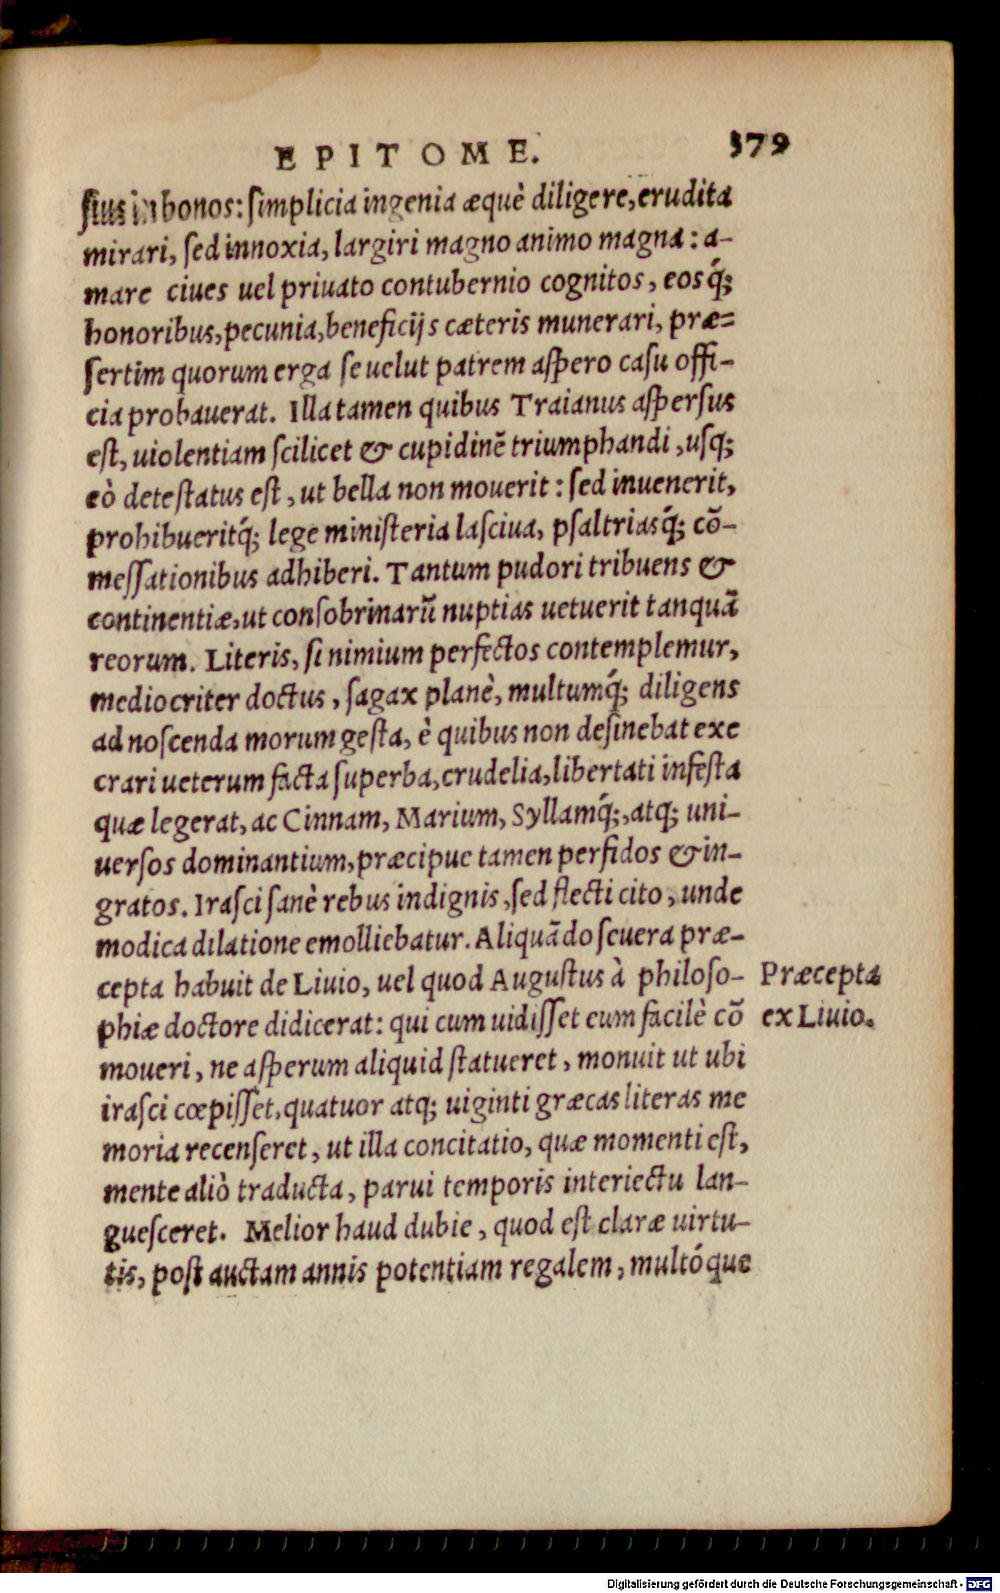 EPITOME. 379
ſius in bonos: ſimplicia ingenia æquè diligere, erudita
mirari, ſed innoxia, largiri magno animo magna: a-
mare ciues uel priuato contubernio cognitos, eosq́;
honoribus, pecunia, beneficijs cæteris munerari, præ-
ſertim quorum erga ſe uelut patrem aſpero caſu offi-
cia probauerat. Illa tamen quibus Traianus aſperſus
eſt, uiolentiam ſcilicet & cupidinē triumphandi, uſq;
eò deteſtatus eſt, ut bella non mouerit: ſed inuenerit,
prohibueritq́; lege miniſteria laſciua, pſaltriasq́; cō-
meſſationibus adhiberi. Tantum pudori tribuens &
continentiæ, ut conſobrinarū nuptias uetuerit tanquā
reorum. Literis, ſi nimium perfectos contemplemur,
mediocriter doctus, ſagax planè, multumq́; diligens
ad noſcenda morum geſta, è quibus non deſinebat exe
crari ueterum facta ſuperba, crudelia, libertati infeſta
quæ legerat, ac Cinnam, Marium, Syllamq́;, atq; uni-
uerſos dominantium, præcipue tamen perfidos & in-
gratos. Iraſci ſanè rebus indignis, ſed flecti cito, unde
modica dilatione emolliebatur. Aliquādo ſeuera præ-
cepta habuit de Liuio, uel quod Auguſtus à philoſo-
phiæ doctore didicerat: qui cum uidiſſet eum facilè cō
moueri, ne aſperum aliquid ſtatueret, monuit ut ubi
iraſci cœpiſſet, quatuor atq; uiginti græcas literas me
moria recenſeret, ut illa concitatio, quæ momenti eſt,
mente aliò traducta, parui temporis interiectu lan-
gueſceret. Melior haud dubie, quod eſt claræ uirtu-
tis, poſt auctam annis potentiam regalem, multóque
Præcepta
ex Liuio.
Digitalisierung gefördert durch die Deutsche Forschungsgemeinschaft - DFG